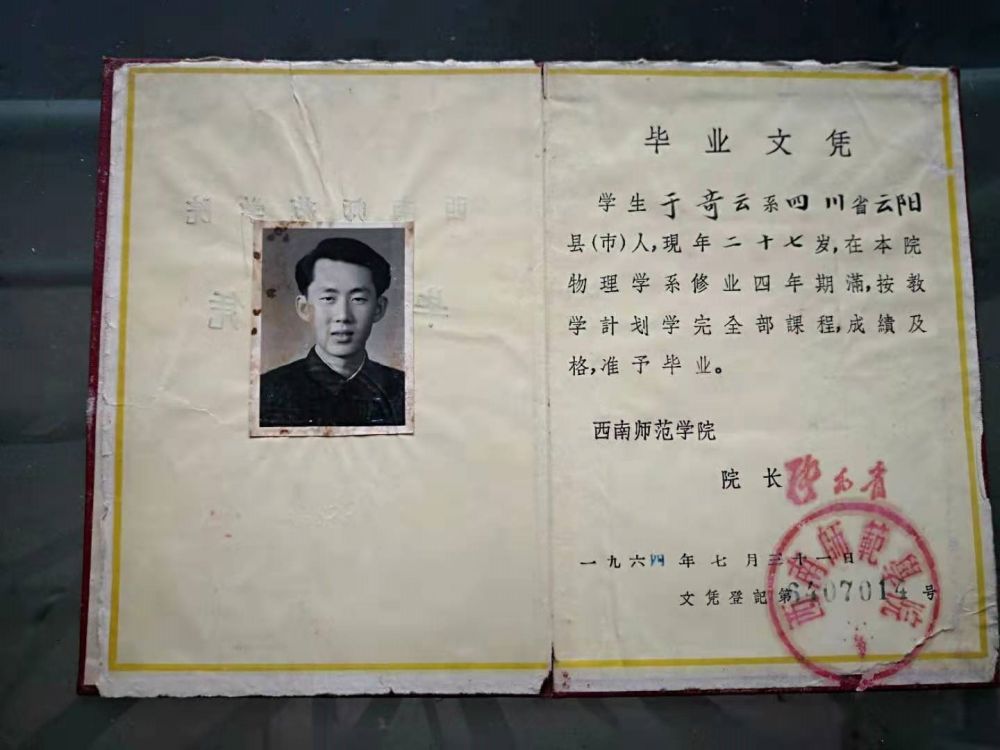 毕业文凭
学生于奇云系四川省云阳
县(市)人,現年二十七岁,在本院
物理学系修业四年期滿,按教
学計划学完全部課程,成績及
格,准予毕业。
西南师范学院
院长
一九六四年七月三十一日
文凭登記第6407014号
西南師範學院